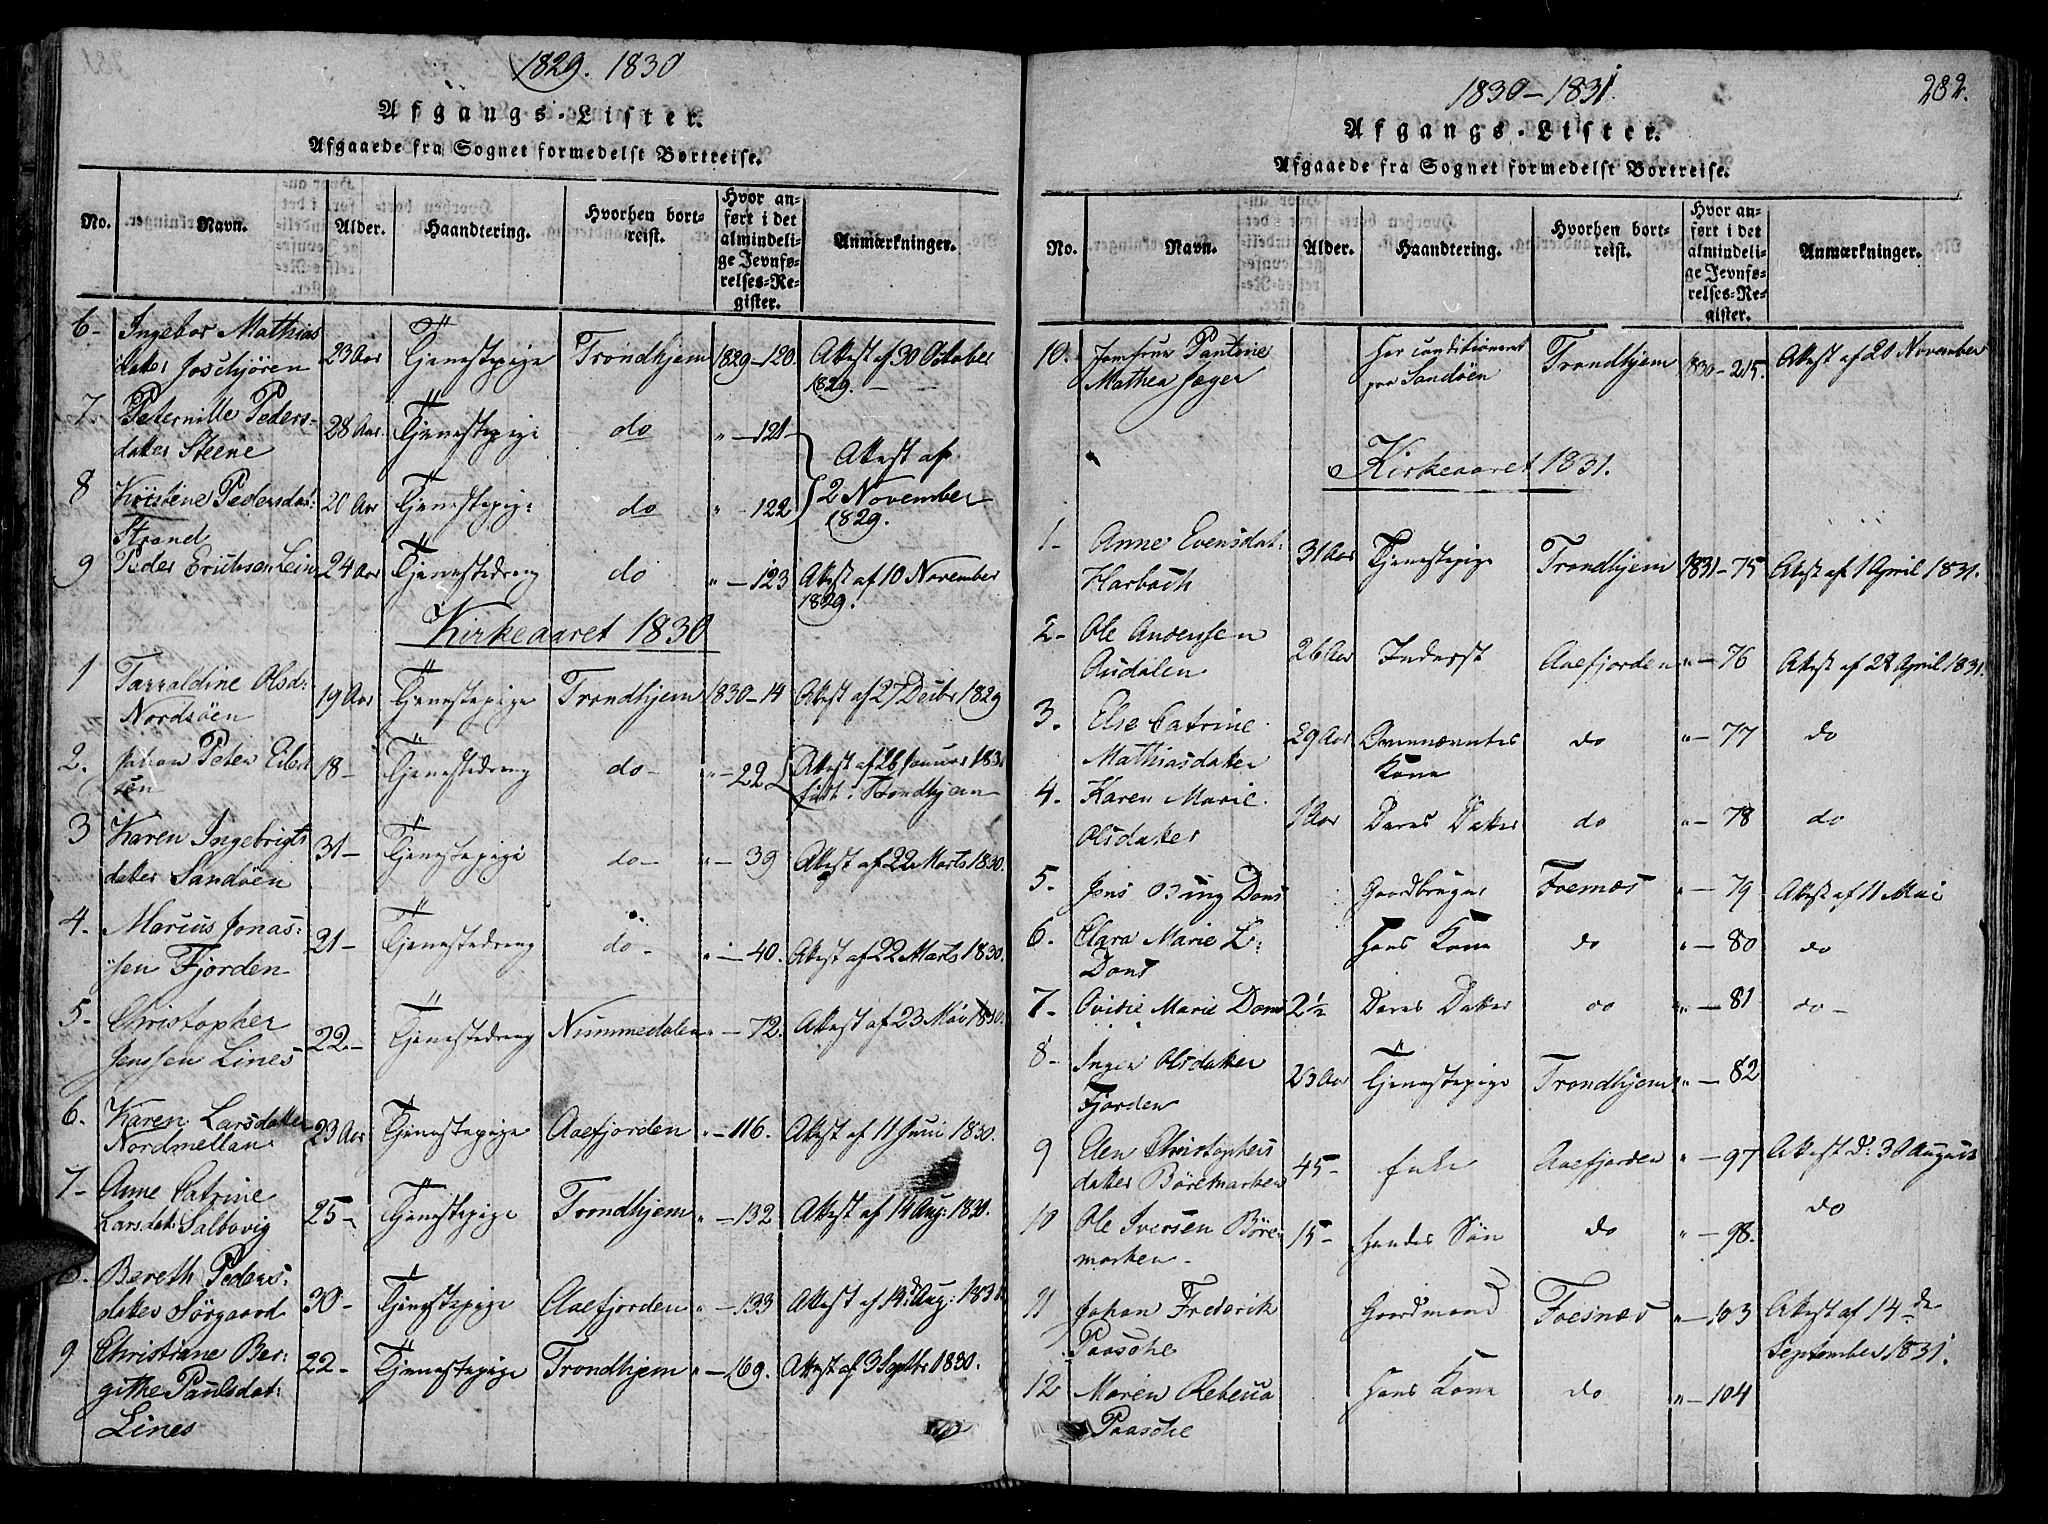 1829. 1830
Afgangs-Lister.
Afgaaede fra Sognet formedelst Bortreise.
No. Navn. Alder. Haandtering. Hvorhen bortreist. Hvor anført i det almindelige Jevnførelses-Register. Anmærkninger.
6- Ingebor Mathias 23 Aar Tjenestepige Trondhjem 1829-120. Attest af 30 October
datter 1829.
7. Peternille Peders- 28 Aar Tjenestepige do " -121 Attest af
datter Steene
8 Kristine Pedersdat: 20 Aar Tjenestepige do " -122 2 November
Strand 1829.
9 Peder Erichsen Lein 24 Aar Tjenestedreng do " -123 Attest af 10 November
1829.
Kirkeaaret 1830
1 Tarraldine Olsd: 19 Aar Tjenestepige Trondhjem 1830-14 Attest af 27 Decbr 1829
Nordsöen
2. Johan Peter Eilert 18- Tjenestedreng do- " -22 Attest af 26 Januar 183
sen födt i Trondhjem
3 Karen Ingebrigts 31- Tjenestepige do- " -39 Attest af 22 Marts 1830.
datter Sandöen
4. Marcus Jonas- 21- Tjenestedreng do- " -40. Attest af 22 Marts 1830.
sen Fjorden
5- Christopher 22- Tjenestedreng Nummedalen " -72. Attest af 23 Mai 1830.
Jenssen Lines
6. Karen Larsdatter 23 Aar Tjenestepige Aaefjorden " -116. Attest af 11 Juni 1830.
Nordmellan
7- Anne Catrine 25- Tjenestepige Trondhjem " -132 Attest af 14 Aug: 1830.
Larsdat: Salbovig
8. Bereth Peders- 30- Tjenestepige Aaefjorden " -133 Attest af 14d Aug: 1830
datter Sörgaard
9 Christiane Ber- 22- Tjenestepige Trondhjem " -169. Attest af 3 Septbr 1830.
githe Paulsdat:
Lines
1830-1831
282.
Afgangs-Lister.
Afgaaede fra Sognet formedelst Bortreise.
No. Navn. Alder. Haandtering. Hvorhen bortreist. Hvor anført i det almindelige Jevnførelses-Register. Anmærkninger.
10. Jomfrue Pauline Har conditioneret Trondhjem 1830-215. Attest af 20 November
Mathea Jæger paa Sandöen
Kirkeaaret 1831.
1- Anne Evensdat: 31 Aar Tjenestepige Trondhjem 1831-75 Attest af 1 April 1831.
Harbach
2- Ole Andersen 26 Aar Inderst Aaefjorden " -76 Attest af 28 April 1831.
Audalen
3. Else Catrine 29 Aar Ovennævntes do " -77 do
Mathiasdatter Kone
4. Karen Marie 1 Aar Deres Datter do " -78 do
Olsdatter
5. Jens Bing Dons Gaardbruger Foesnæs " -79 Attest af 11 Mai
6. Clara Marie L: Hans Kone do " -80 do
Dons
7- Ovidie Marie Dons 2½ Deres Datter do " -81 do-
8- Inger Olsdatter 23 Aar Tjenestepige Trondhjem " -82
Fjorden
9 Elen Christophers 45- Enke Aaefjorden " -97 Attest d: 30 August
datter Böremarken
10 Ole Iversen Böre- 15- hendes Sön do " -98. do
marken-
11 Johan Frederik Gaardmand Foesnæs " -103 Attest af 14de
Paasche September 1831.
12 Maren Rebecca Hans Kone do " -104
Paasche